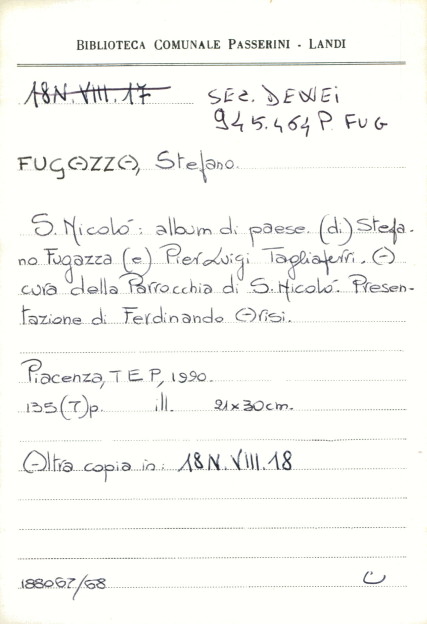 BIBLIOTECA COMUNALE PASSERINI - LANDI
18N.VIII.17 SEZ. DEWEI
945.464 P. FUG
FUGAZZA, Stefano.
S. Nicoló: album di paese. (di) Stefa-
no Fugazza (e) PierLuigi Tagliaferri. A
cura della Parrocchia di S. Nicoló. Presen-
tazione di Ferdinando Arisi.
Piacenza, T E P, 1990.
135(7)p. ill. 21x30cm.
Altra copia in: 18N.VIII.18
188067/68